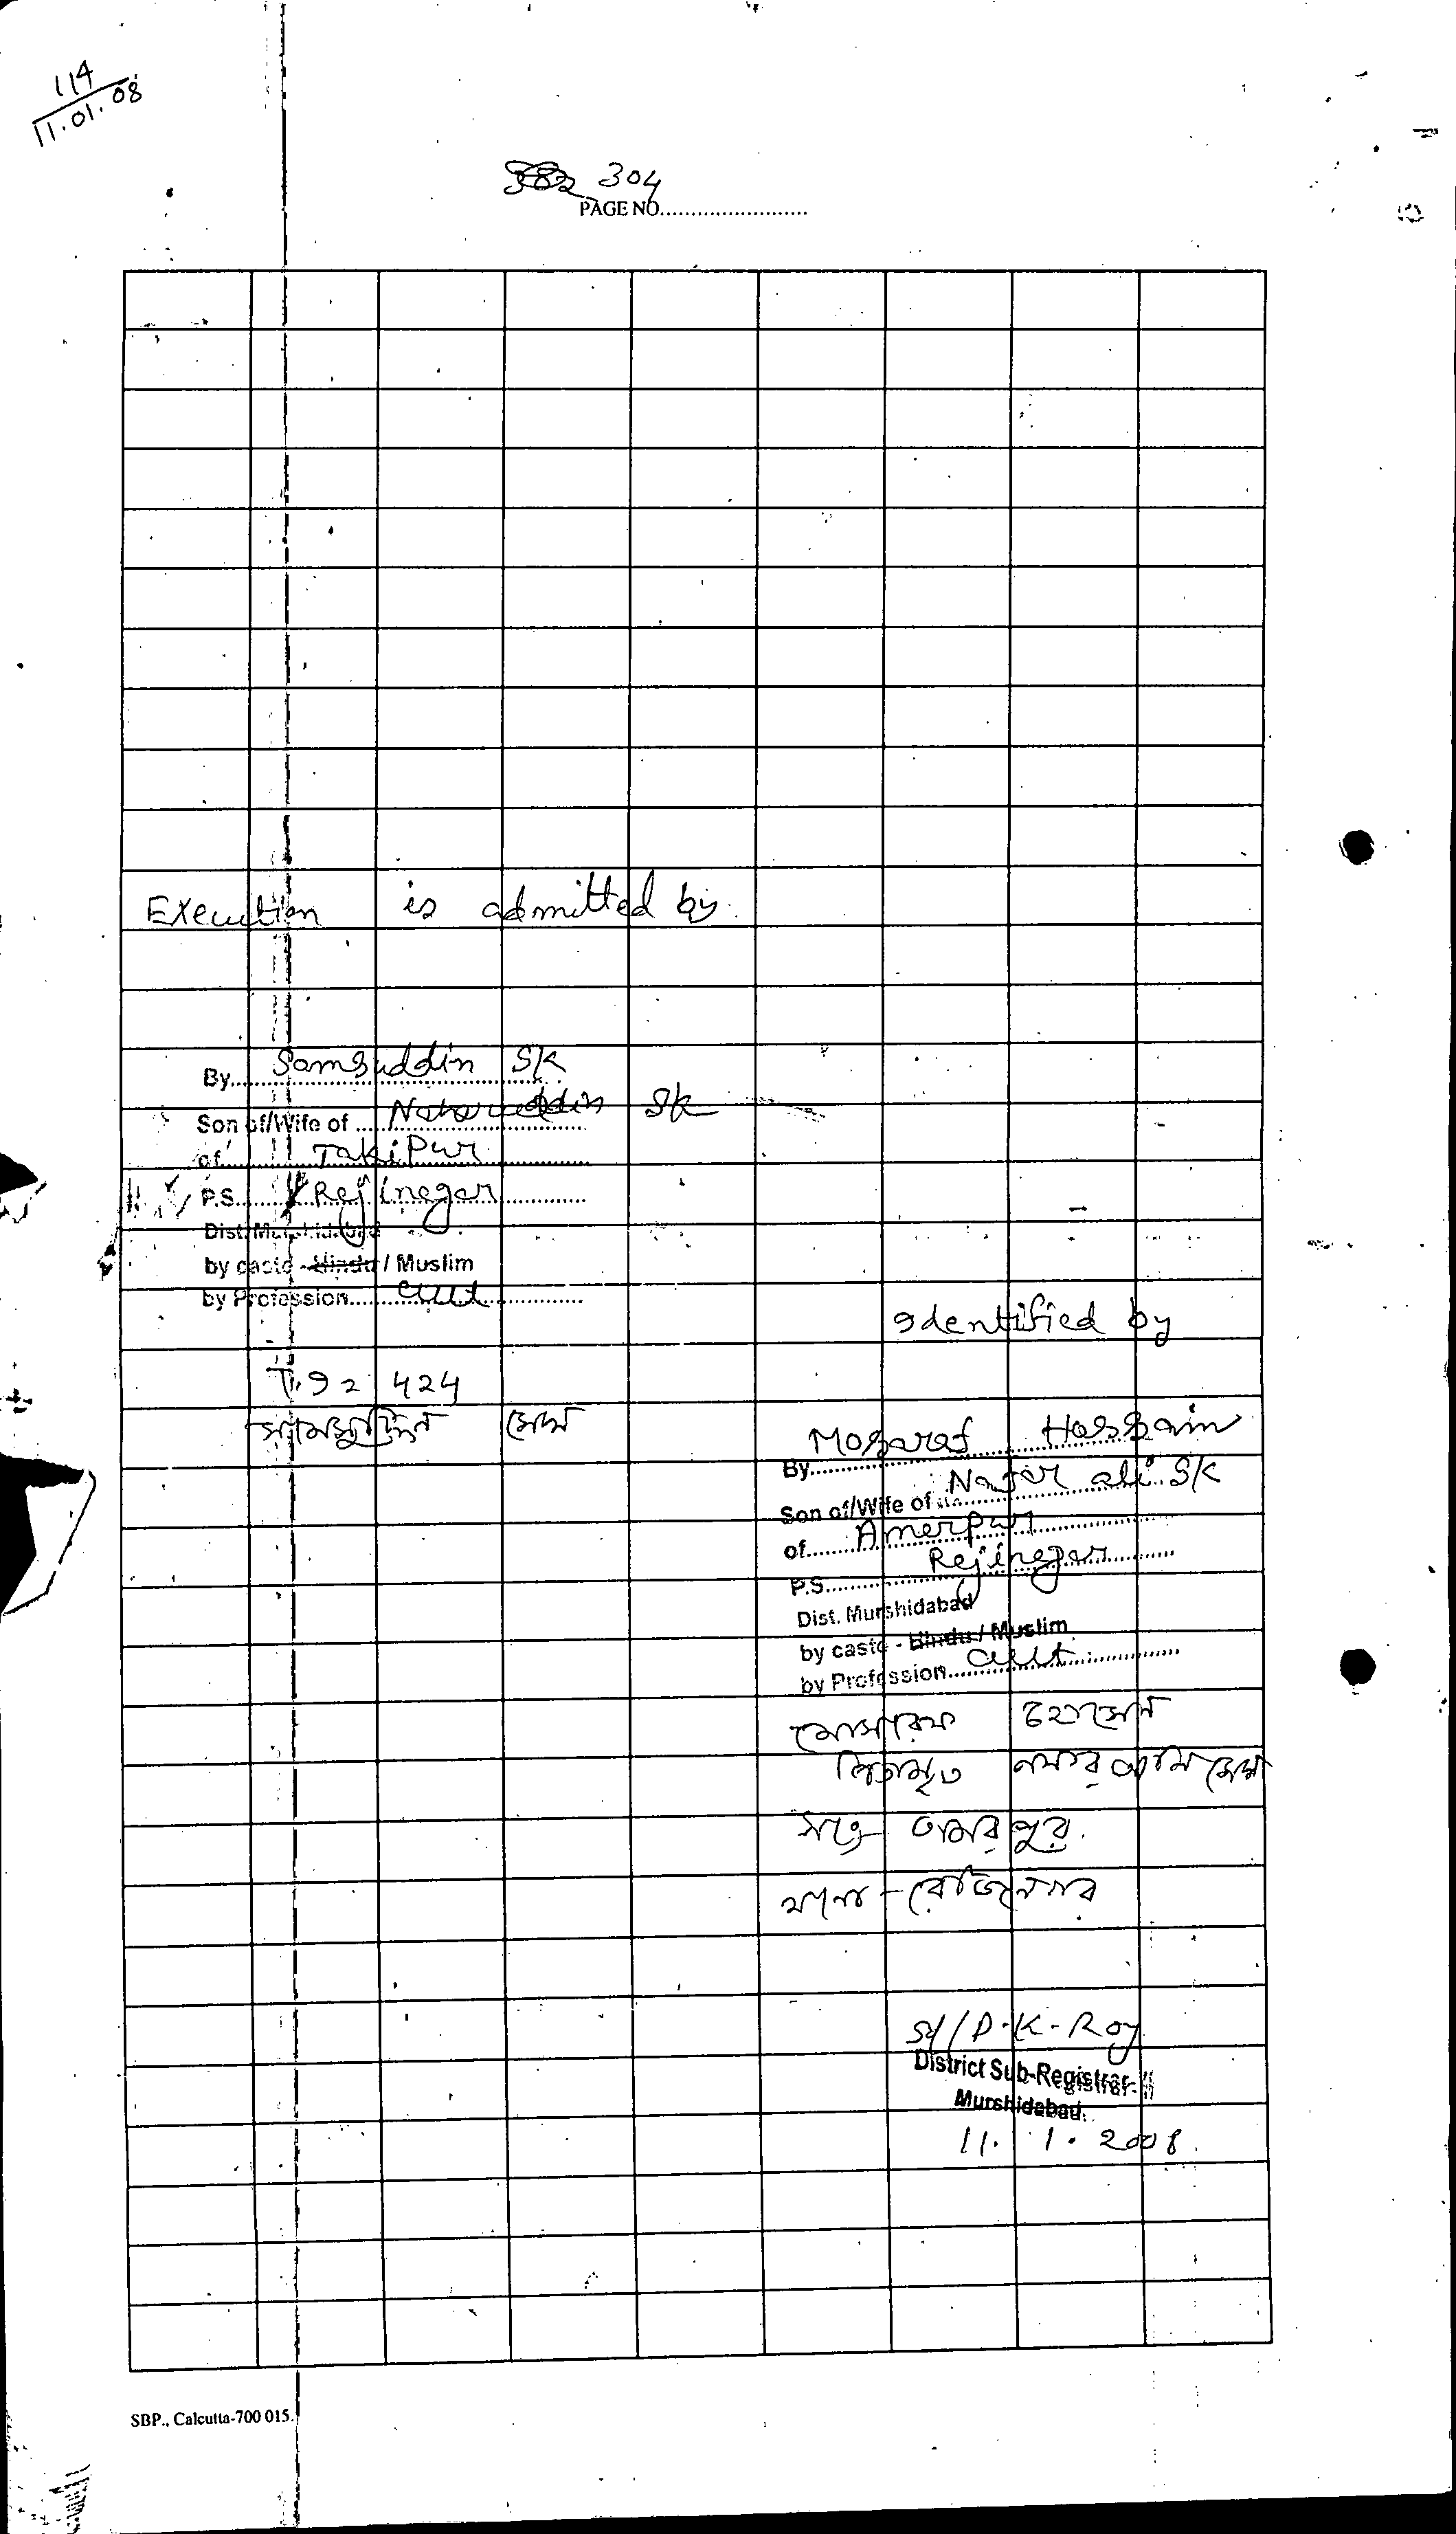 114
11.01.08
304
PAGE NO........................
Execution is admitted by
By Samsuddin SK
Son of/Wife of Naharuddin SK
of Takipur
P.S. Rejinagar
Dist. Murshidabad
by caste - Hindu / Muslim
by Profession cult
424
সামসুদ্দিন সেখ
Identified by
By Mosaraf Hossain
Son of/Wife of Najar ali SK
of Amerpur
P.S. Rejinagar
Dist. Murshidabad
by caste - Hindu / Muslim
by Profession cult
মোসারেফ হোসেন
পিতামৃত নজার আলি সেখ
সাং - আমরপুর
থানা - রেজিনগর
Sd/ D. K. Roy
District Sub-Registrar-II
Murshidabad.
11. 1. 2008.
SBP., Calcutta-700 015.